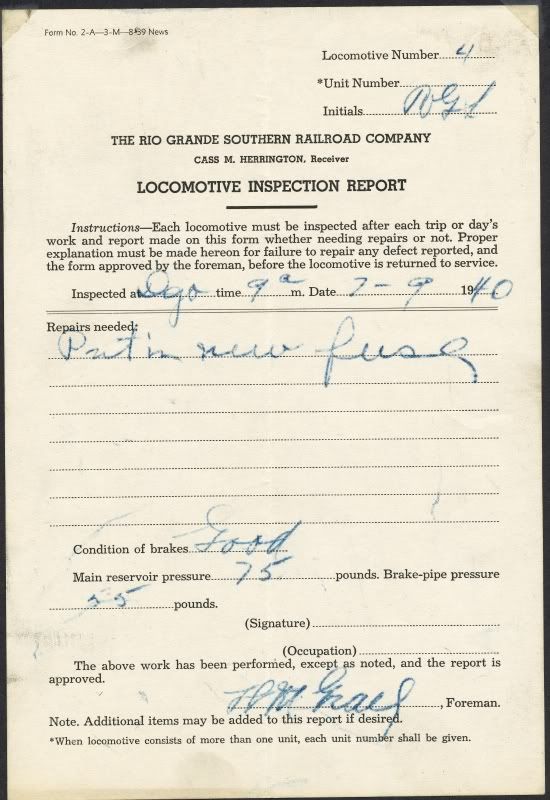 Form No. 2-A—3-M—8-39 News
Locomotive Number 4
*Unit Number
Initials RGS
THE RIO GRANDE SOUTHERN RAILROAD COMPANY
CASS M. HERRINGTON, Receiver
LOCOMOTIVE INSPECTION REPORT
Instructions—Each locomotive must be inspected after each trip or day's
work and report made on this form whether needing repairs or not. Proper
explanation must be made hereon for failure to repair any defect reported, and
the form approved by the foreman, before the locomotive is returned to service.
Inspected at Dgo time 9 a m. Date 7-9 1940
Repairs needed:
Put in new fuse
Condition of brakes Good
Main reservoir pressure 75 pounds. Brake-pipe pressure
55 pounds.
(Signature)
(Occupation)
The above work has been performed, except as noted, and the report is
approved.
, Foreman.
Note. Additional items may be added to this report if desired.
*When locomotive consists of more than one unit, each unit number shall be given.